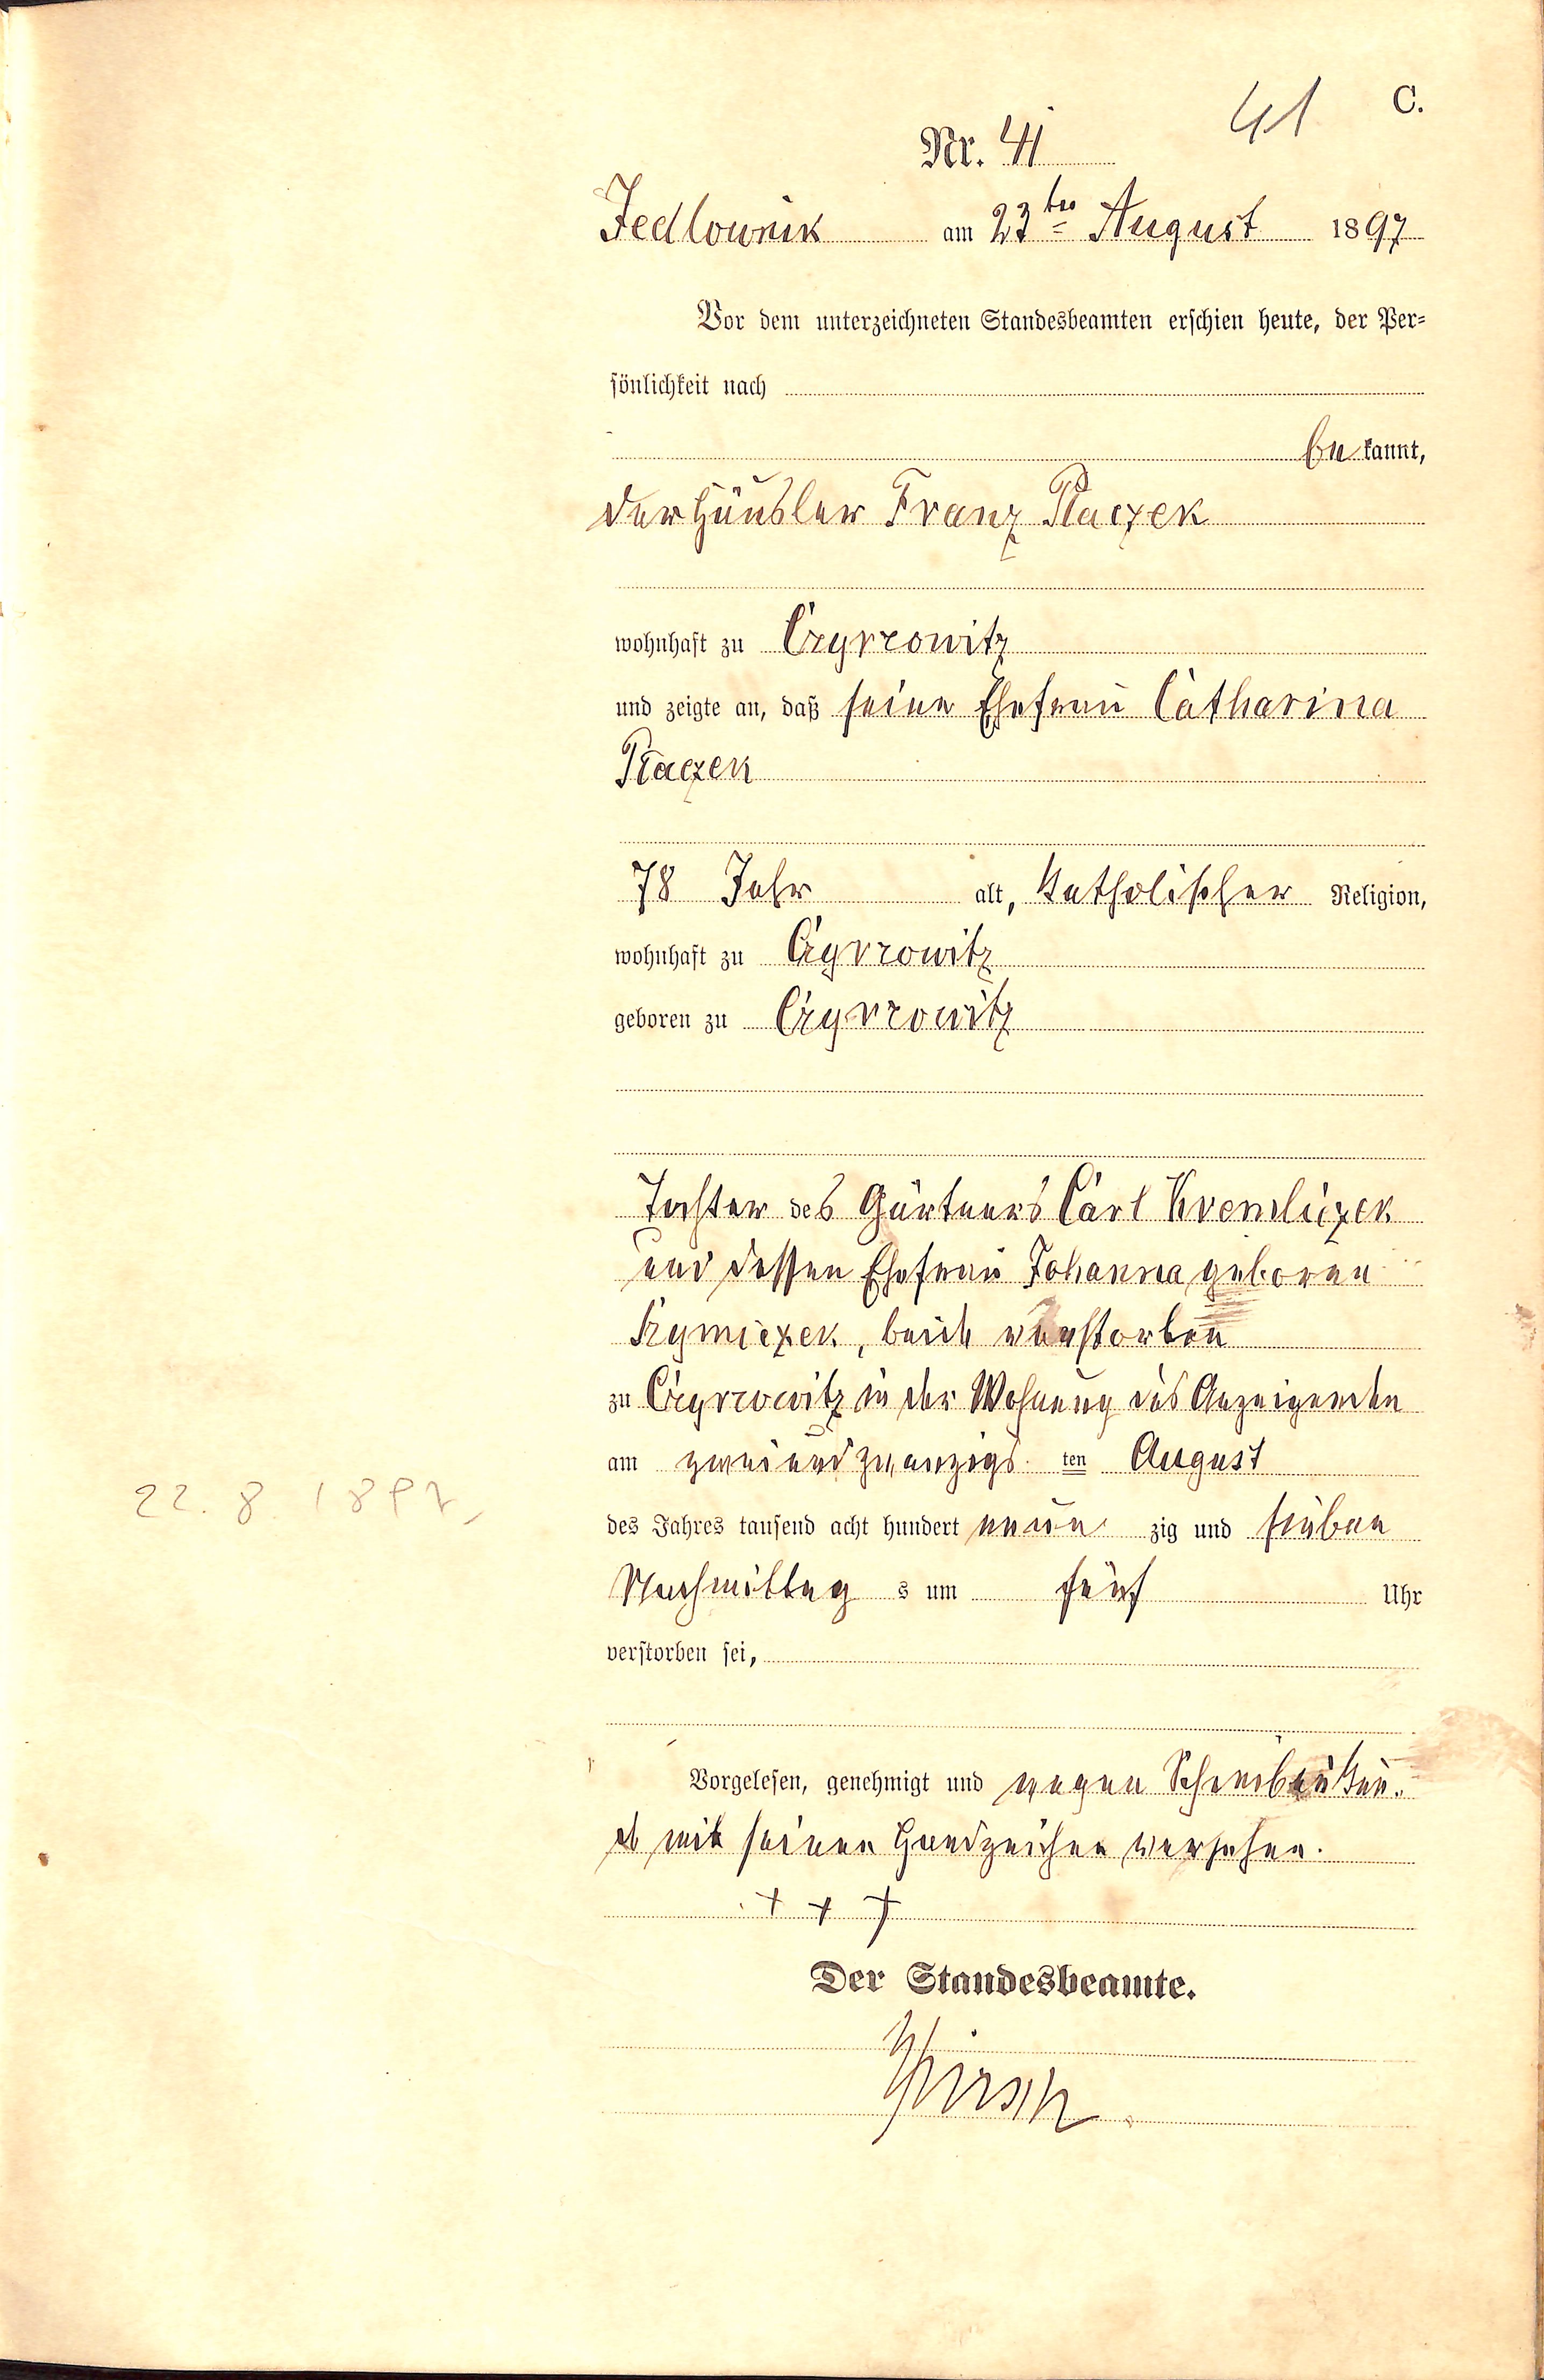 41 C.
Nr. 41
Jedlownik am 23ten August 1897
Vor dem unterzeichneten Standesbeamten erschien heute, der Per=
sönlichkeit nach
be kannt,
der Häusler Franz Placzek
wohnhaft zu Czyrzowitz
und zeigte an, daß seine Ehefrau Catharina
Placzek
78 Jahr alt, katholischer Religion,
wohnhaft zu Czyrzowitz
geboren zu Czyrzowitz
Tochter des Gärtners Carl
und dessen Ehefrau Johanna geboren
beide verstorben
zu Czyrzowitz in der Wohnung des Anzeigenden
am zweiundzwanzigs ten August
22. 8. 1897
des Jahres tausend acht hundert neun zig und sieben
Nachmittag s um fünf Uhr
verstorben sei,
Vorgelesen, genehmigt und wegen
mit seinen Handzeichen versehen.
+ + +
Der Standesbeamte.